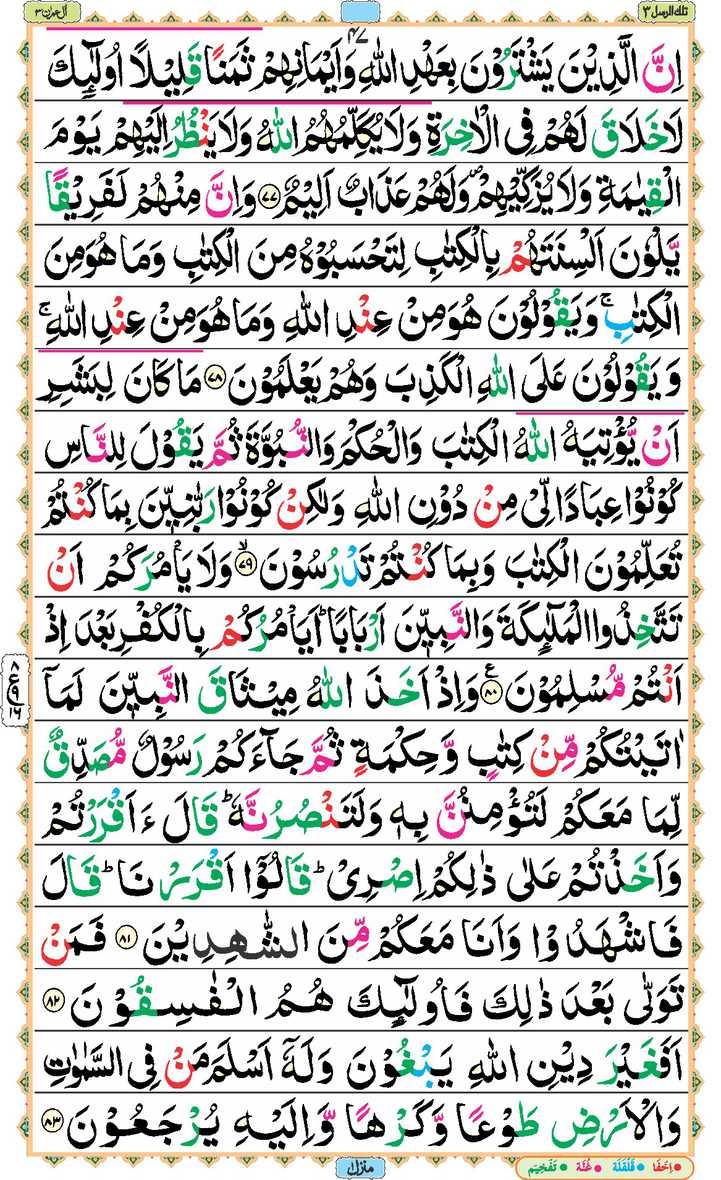 تلك الرسل ٣
اٰل عمرٰن ٣
اِنَّ الَّذِيْنَ يَشْتَرُوْنَ بِعَهْدِ اللّٰهِ وَاَيْمَانِهِمْ ثَمَنًا قَلِيْلًا اُولٰٓئِكَ
لَا خَلَاقَ لَهُمْ فِى الْاٰخِرَةِ وَلَا يُكَلِّمُهُمُ اللّٰهُ وَلَا يَنْظُرُ اِلَيْهِمْ يَوْمَ
الْقِيٰمَةِ وَلَا يُزَكِّيْهِمْ ۪ وَلَهُمْ عَذَابٌ اَلِيْمٌ ﴿۷۷﴾ وَاِنَّ مِنْهُمْ لَفَرِيْقًا
يَّلْوٗنَ اَلْسِنَتَهُمْ بِالْكِتٰبِ لِتَحْسَبُوْهُ مِنَ الْكِتٰبِ وَمَا هُوَ مِنَ
الْكِتٰبِ ۚ وَيَقُوْلُوْنَ هُوَ مِنْ عِنْدِ اللّٰهِ وَمَا هُوَ مِنْ عِنْدِ اللّٰهِ ۚ
وَيَقُوْلُوْنَ عَلَى اللّٰهِ الْكَذِبَ وَهُمْ يَعْلَمُوْنَ ﴿۷۸﴾ مَا كَانَ لِبَشَرٍ
اَنْ يُّؤْتِيَهُ اللّٰهُ الْكِتٰبَ وَالْحُكْمَ وَالنُّبُوَّةَ ثُمَّ يَقُوْلَ لِلنَّاسِ
كُوْنُوْا عِبَادًا لِّىْ مِنْ دُوْنِ اللّٰهِ وَلٰكِنْ كُوْنُوْا رَبّٰنِيّٖنَ بِمَا كُنْتُمْ
تُعَلِّمُوْنَ الْكِتٰبَ وَبِمَا كُنْتُمْ تَدْرُسُوْنَ ۙ﴿۷۹﴾ وَلَا يَاْمُرَكُمْ اَنْ
تَتَّخِذُوا الْمَلٰٓئِكَةَ وَالنَّبِيّٖنَ اَرْبَابًا ؕ اَيَاْمُرُكُمْ بِالْكُفْرِ بَعْدَ اِذْ
اَنْتُمْ مُّسْلِمُوْنَ ﴿۸۰﴾ ع وَاِذْ اَخَذَ اللّٰهُ مِيْثَاقَ النَّبِيّٖنَ لَمَاۤ
اٰتَيْتُكُمْ مِّنْ كِتٰبٍ وَّحِكْمَةٍ ثُمَّ جَآءَكُمْ رَسُوْلٌ مُّصَدِّقٌ
لِّمَا مَعَكُمْ لَتُؤْمِنُنَّ بِهٖ وَلَتَنْصُرُنَّهٗ ؕ قَالَ ءَاَقْرَرْتُمْ
وَاَخَذْتُمْ عَلٰى ذٰلِكُمْ اِصْرِىْ ؕ قَالُوْۤا اَقْرَرْنَا ؕ قَالَ
فَاشْهَدُوْا وَاَنَا مَعَكُمْ مِّنَ الشّٰهِدِيْنَ ﴿۸۱﴾ فَمَنْ
تَوَلّٰى بَعْدَ ذٰلِكَ فَاُولٰٓئِكَ هُمُ الْفٰسِقُوْنَ ﴿۸۲﴾
اَفَغَيْرَ دِيْنِ اللّٰهِ يَبْغُوْنَ وَلَهٗۤ اَسْلَمَ مَنْ فِى السَّمٰوٰتِ
وَالْاَرْضِ طَوْعًا وَّكَرْهًا وَّاِلَيْهِ يُرْجَعُوْنَ ﴿۸۳﴾
۸
ع ۹
۱۶
منزل ۱
اِخْفَا • قَلْقَلَة • غُنَّة • تَفْخِيْم •